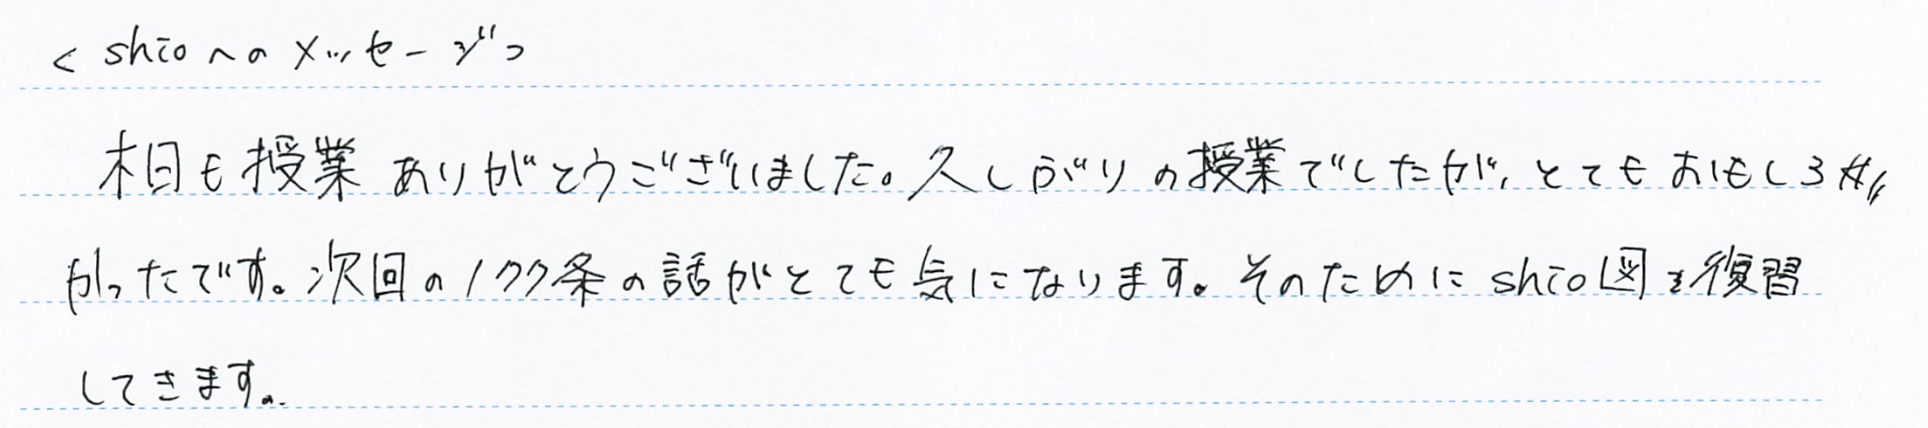 <shioへのメッセージ>
本日も授業ありがとうございました。久しぶりの授業でしたが、とてもおもしろ
かったです。次回の177条の話がとても気になります。そのためにshio図を復習
してきます。